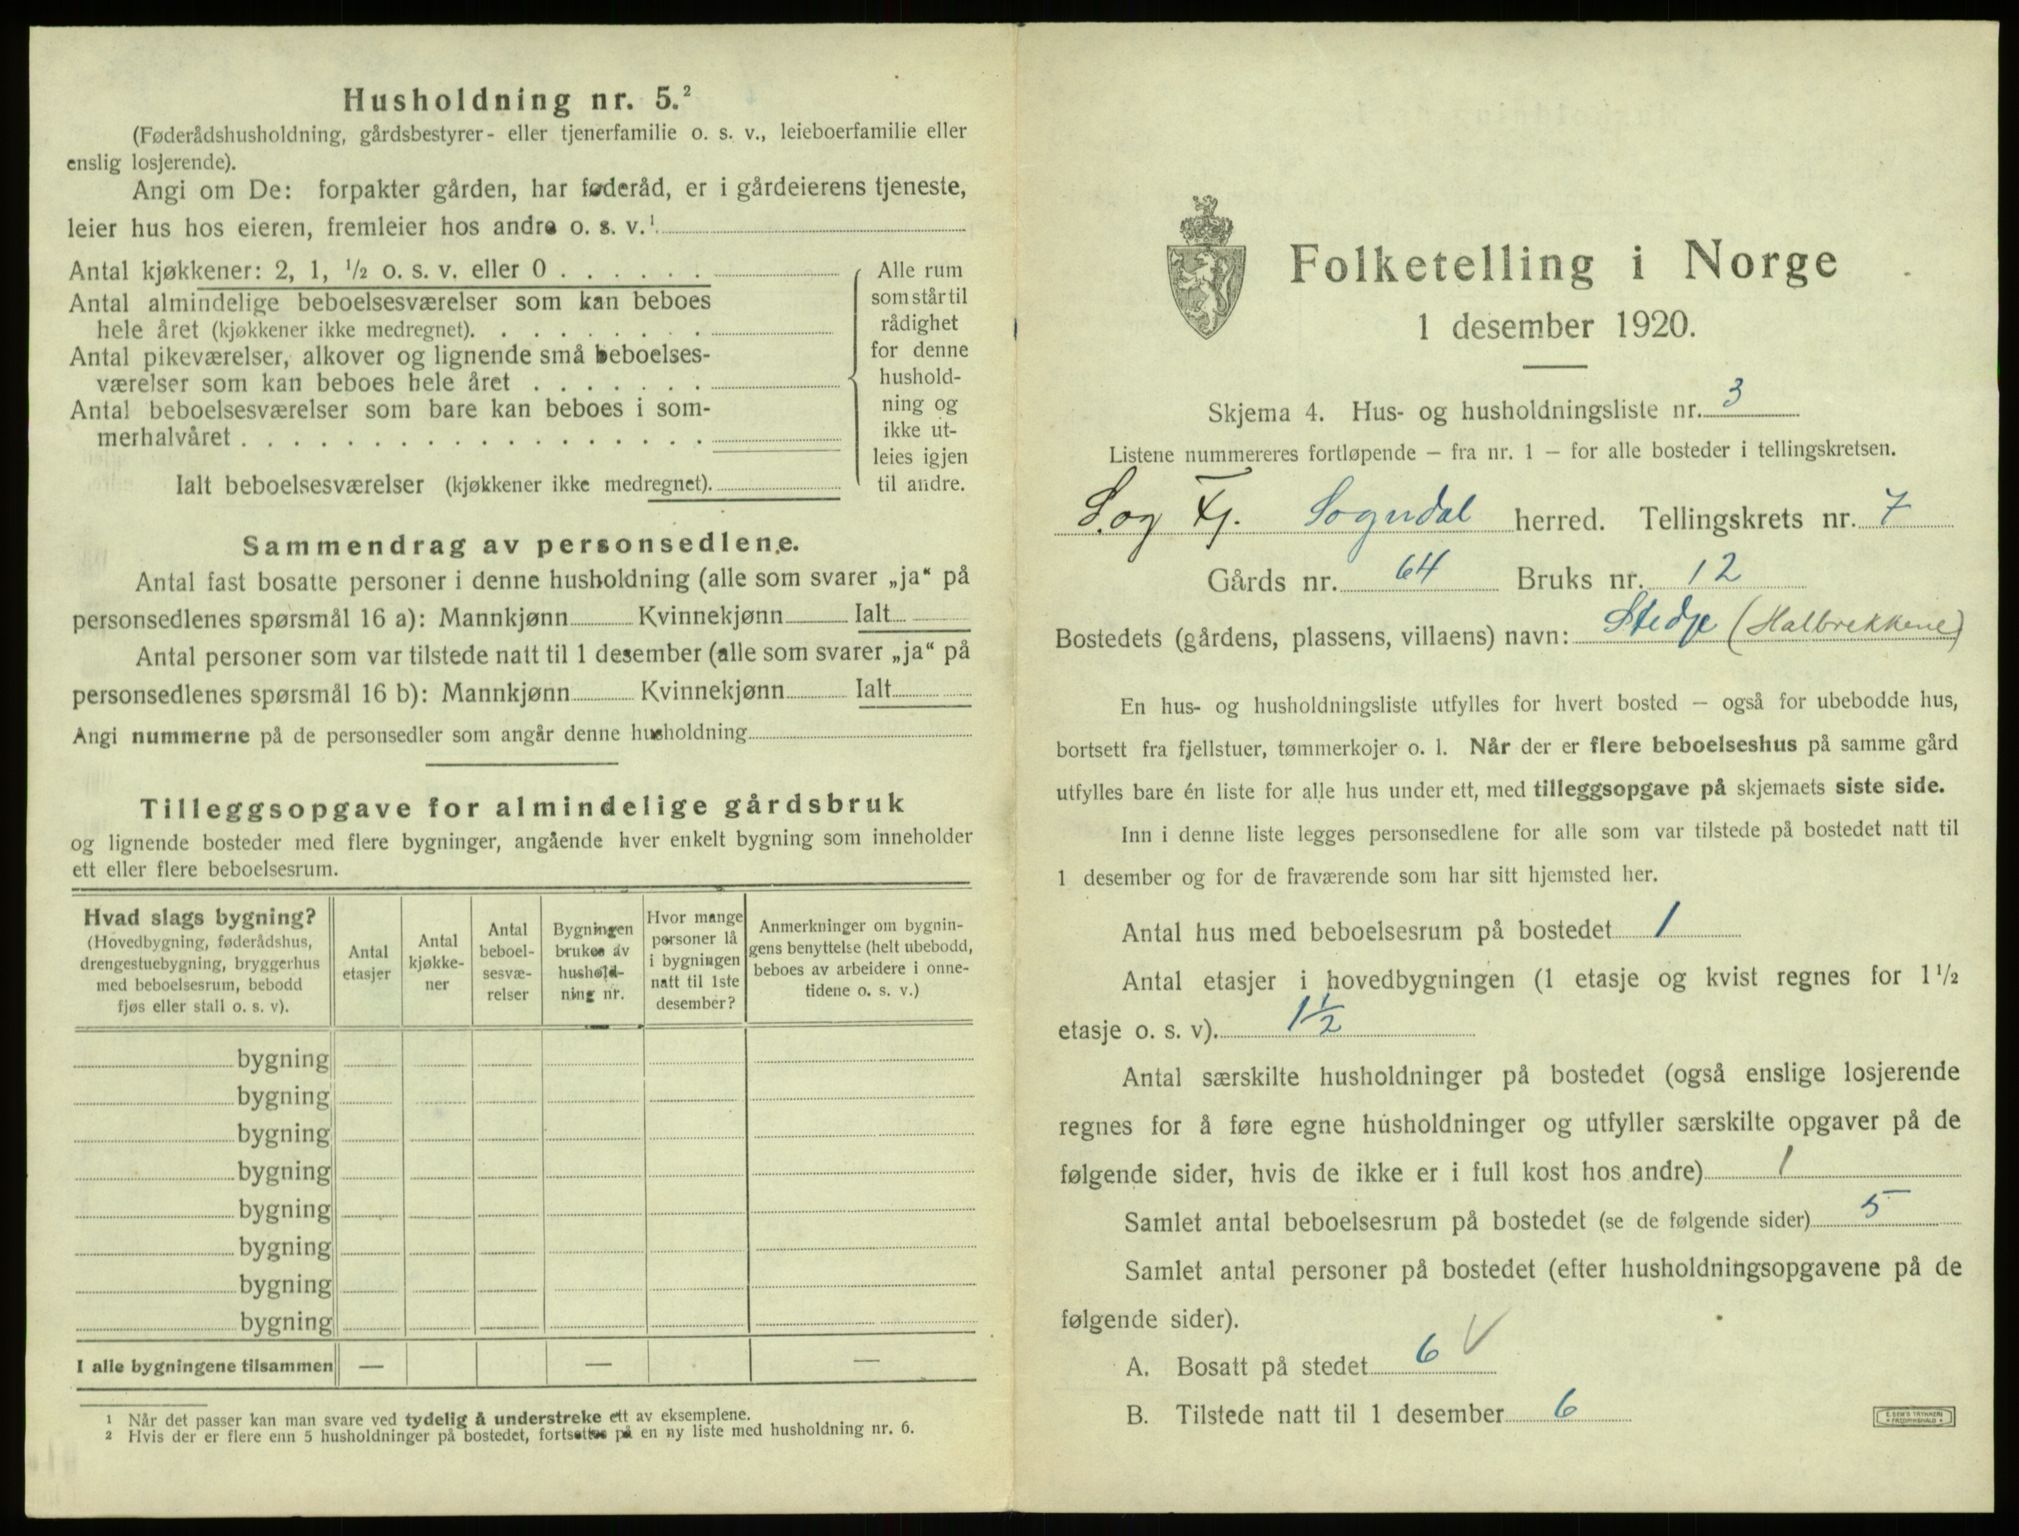 Husholdning nr. 5.²
(Føderådshusholdning, gårdsbestyrer- eller tjenerfamilie o. s. v., leieboerfamilie eller
enslig losjerende).
Angi om De: forpakter gården, har føderåd, er i gårdeierens tjeneste,
leier hus hos eieren, fremleier hos andre o. s. v.¹
Antal kjøkkener: 2, 1, ½ o. s. v. eller 0 . . . . . .
Antal almindelige beboelsesværelser som kan beboes
hele året (kjøkkener ikke medregnet). . . . . . . . .
Antal pikeværelser, alkover og lignende små beboelses-
værelser som kan beboes hele året . . . . . . .
Antal beboelsesværelser som bare kan beboes i som-
merhalvåret . . . . . . . . . . . . . . . . . .
Ialt beboelsesværelser (kjøkkener ikke medregnet).
Alle rum
som står til
rådighet
for denne
hushold-
ning og
ikke ut-
leies igjen
til andre.
Sammendrag av personsedlene.
Antal fast bosatte personer i denne husholdning (alle som svarer „ja“ på
personsedlenes spørsmål 16 a): Mannkjønn Kvinnekjønn Ialt
Antal personer som var tilstede natt til 1 desember (alle som svarer „ja“ på
personsedlenes spørsmål 16 b): Mannkjønn Kvinnekjønn Ialt
Angi nummerne på de personsedler som angår denne husholdning
Tilleggsopgave for almindelige gårdsbruk
og lignende bosteder med flere bygninger, angående hver enkelt bygning som inneholder
ett eller flere beboelsesrum.
Hvad slags bygning?
(Hovedbygning, føderådshus,
drengestuebygning, bryggerhus
med beboelsesrum, bebodd
fjøs eller stall o. s. v).
Antal
etasjer
Antal
kjøkke-
ner
Antal
beboel-
sesvæ-
relser
Bygningen
brukes av
hushold-
ning nr.
Hvor mange
personer lå
i bygningen
natt til 1ste
desember?
Anmerkninger om bygnin-
gens benyttelse (helt ubebodd,
beboes av arbeidere i onne-
tidene o. s. v.)
bygning
bygning
bygning
bygning
bygning
bygning
bygning
bygning
I alle bygningene tilsammen — — —
¹ Når det passer kan man svare ved tydelig å understreke ett av eksemplene.
² Hvis der er flere enn 5 husholdninger på bostedet, fortsettes på en ny liste med husholdning nr. 6.
Folketelling i Norge
1 desember 1920.
Skjema 4. Hus- og husholdningsliste nr. 3
Listene nummereres fortløpende – fra nr. 1 – for alle bosteder i tellingskretsen.
S. og Fj. Sogndal herred. Tellingskrets nr. 7
Gårds nr. 64 Bruks nr. 12
Bostedets (gårdens, plassens, villaens) navn: Stedje (Halbrekkene)
En hus- og husholdningsliste utfylles for hvert bosted – også for ubebodde hus,
bortsett fra fjellstuer, tømmerkojer o. l. Når der er flere beboelseshus på samme gård
utfylles bare én liste for alle hus under ett, med tilleggsopgave på skjemaets siste side.
Inn i denne liste legges personsedlene for alle som var tilstede på bostedet natt til
1 desember og for de fraværende som har sitt hjemsted her.
Antal hus med beboelsesrum på bostedet 1
Antal etasjer i hovedbygningen (1 etasje og kvist regnes for 1½
etasje o. s. v). 1½
Antal særskilte husholdninger på bostedet (også enslige losjerende
regnes for å føre egne husholdninger og utfyller særskilte opgaver på de
følgende sider, hvis de ikke er i full kost hos andre) 1
Samlet antal beboelsesrum på bostedet (se de følgende sider) 5
Samlet antal personer på bostedet (efter husholdningsopgavene på de
følgende sider).
A. Bosatt på stedet 6 V
B. Tilstede natt til 1 desember 6